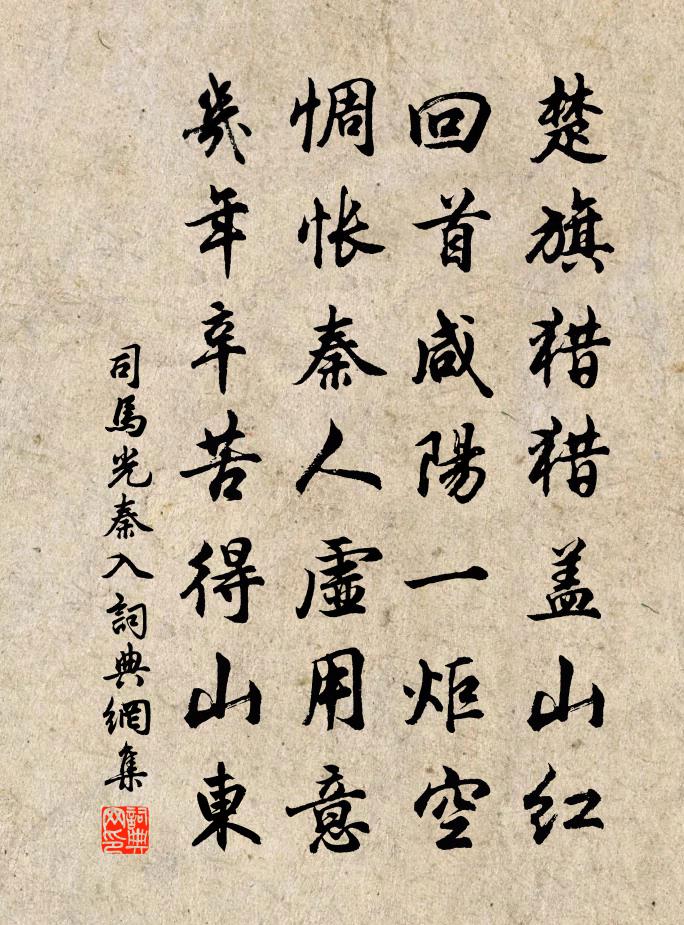 楚旗猎猎盖山红
回首咸陽一炬空
惆怅秦人虛用意
幾年辛苦得山東
司馬光秦入詞典網集
詞典网印